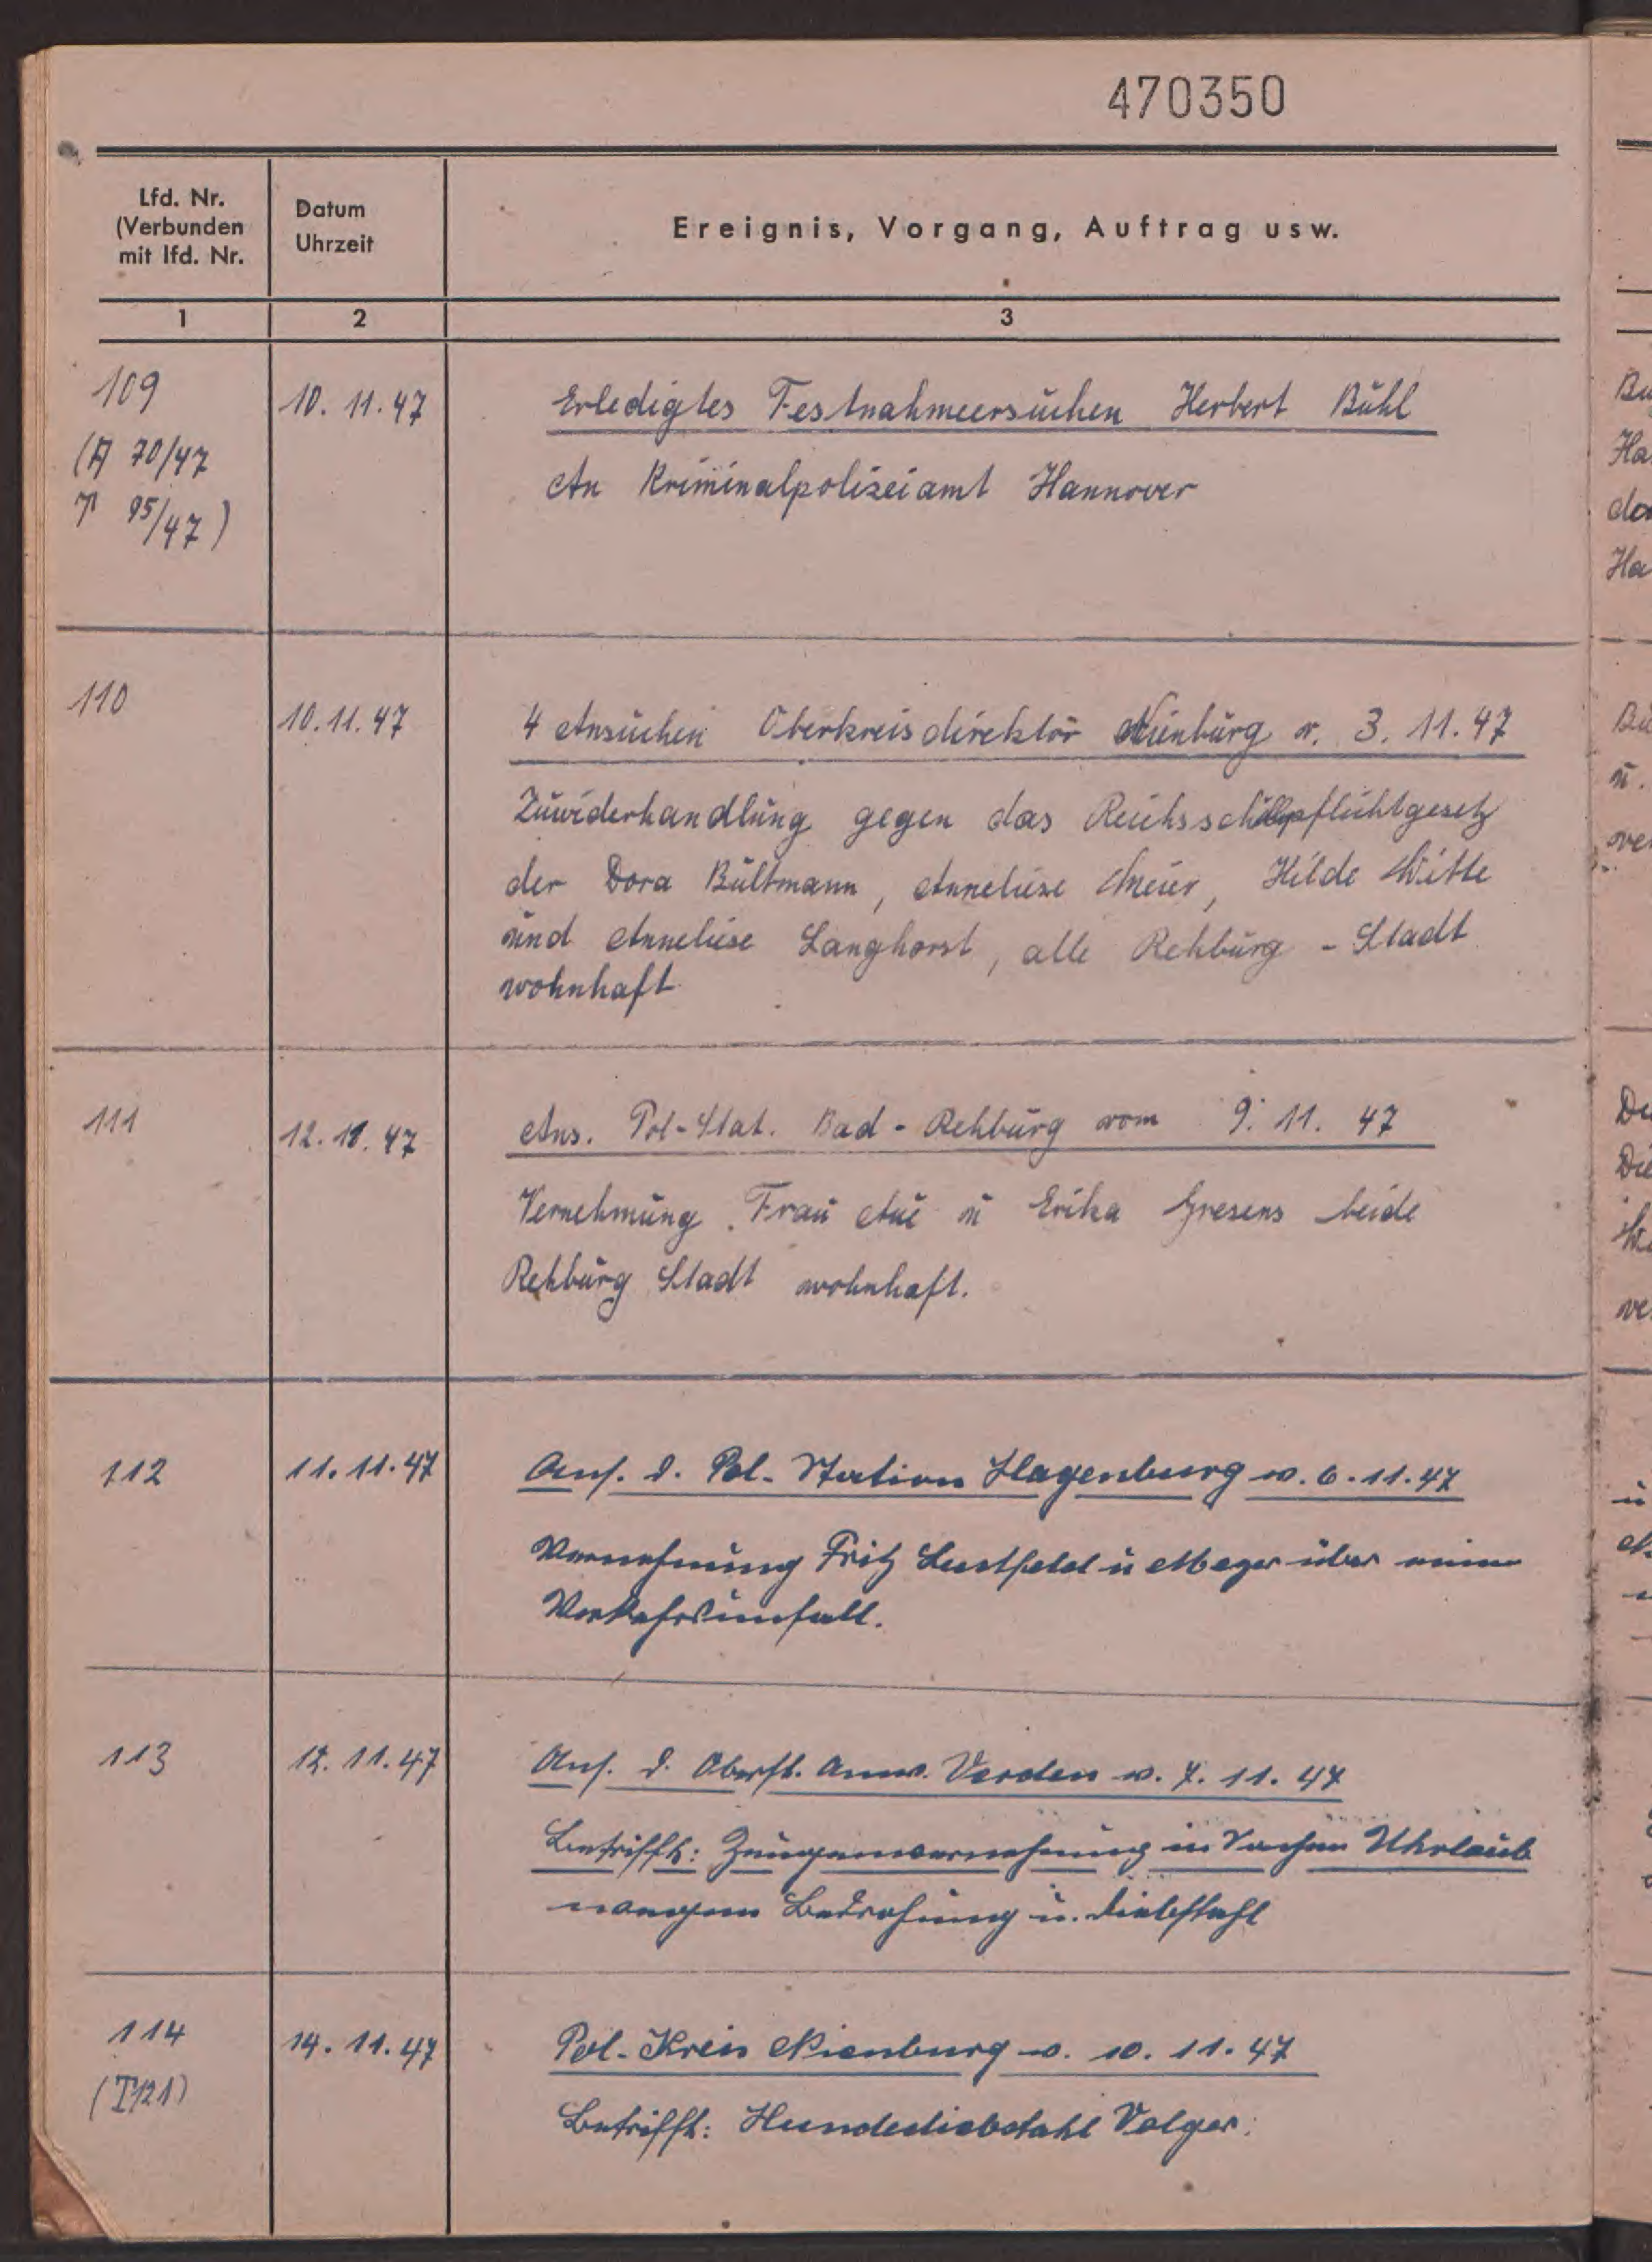 470350
Lfd. Nr.
(Verbunden
mit lfd. Nr.
Datum
Uhrzeit
Ereignis, Vorgang, Auftrag usw.
1
2
3
109
(A 70/47
95/47)
10. 11. 47
Erledigtes Festnahmeersuchen Herbert Bühl
An Kriminalpolizeiamt Hannover
110
10. 11. 47
4 Ansuchen Oberkreisdirektor Nienburg v. 3. 11. 47
Zuwiderhandlung gegen das Reichsschulpflichtgesetz
der Dora Bültmann, Anneliese Meier, Hilde Witte
und Anneliese Langhorst, alle Rehburg - Stadt
wohnhaft
111
12. 11. 47
Ans. Pol-Stat. Bad - Rehburg vom 9. 11. 47
Vernehmung Frau Aue u Erika Gresens beide
Rehburg Stadt wohnhaft.
112
11. 11. 47
Ans. d. Pol. Station Hagenburg v. 6. 11. 47
Vernehmung Fritz Lustfeld u Meyer über einen
Verkehrsunfall.
113
12. 11. 47
Ans. d. Oberst. Anw. Verden v. 7. 11. 47
Betrifft: Zeugenvernehmung in Sachen Uhrlaub
wegen Bedrohung u. Diebstahl
114
(T121)
14. 11. 47
Pol. Kreis Nienburg v. 10. 11. 47
Betrifft: Hundediebstahl Volger.